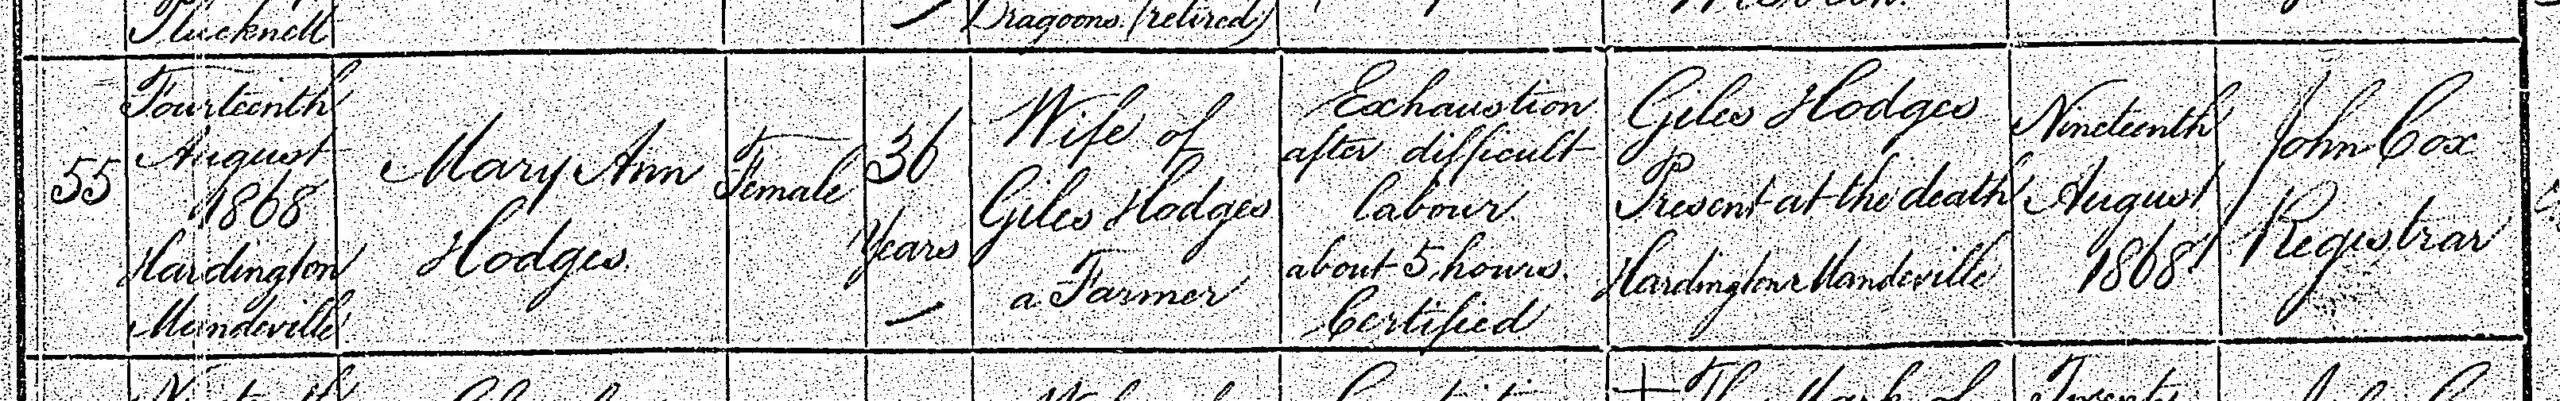 Plucknett
Dragoons (retired)
55
Fourteenth
August
1868
Hardington
Mandeville
Mary Ann
Hodges
Female
36
Years
Wife of
Giles Hodges
a Farmer
Exhaustion
after difficult
labour
about 5 hours.
Certified
Giles Hodges
Present at the death
Hardington Mandeville
Nineteenth
August
1868
John Cox
Registrar
The Mark of